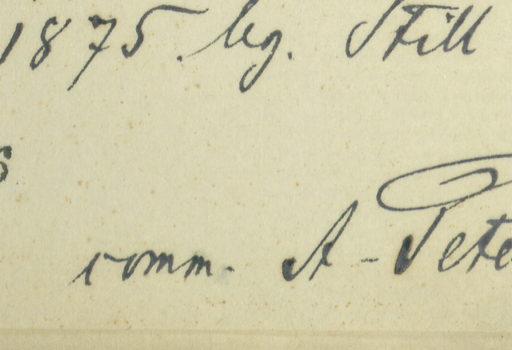 1875. leg. Still
s
comm. A. Pete